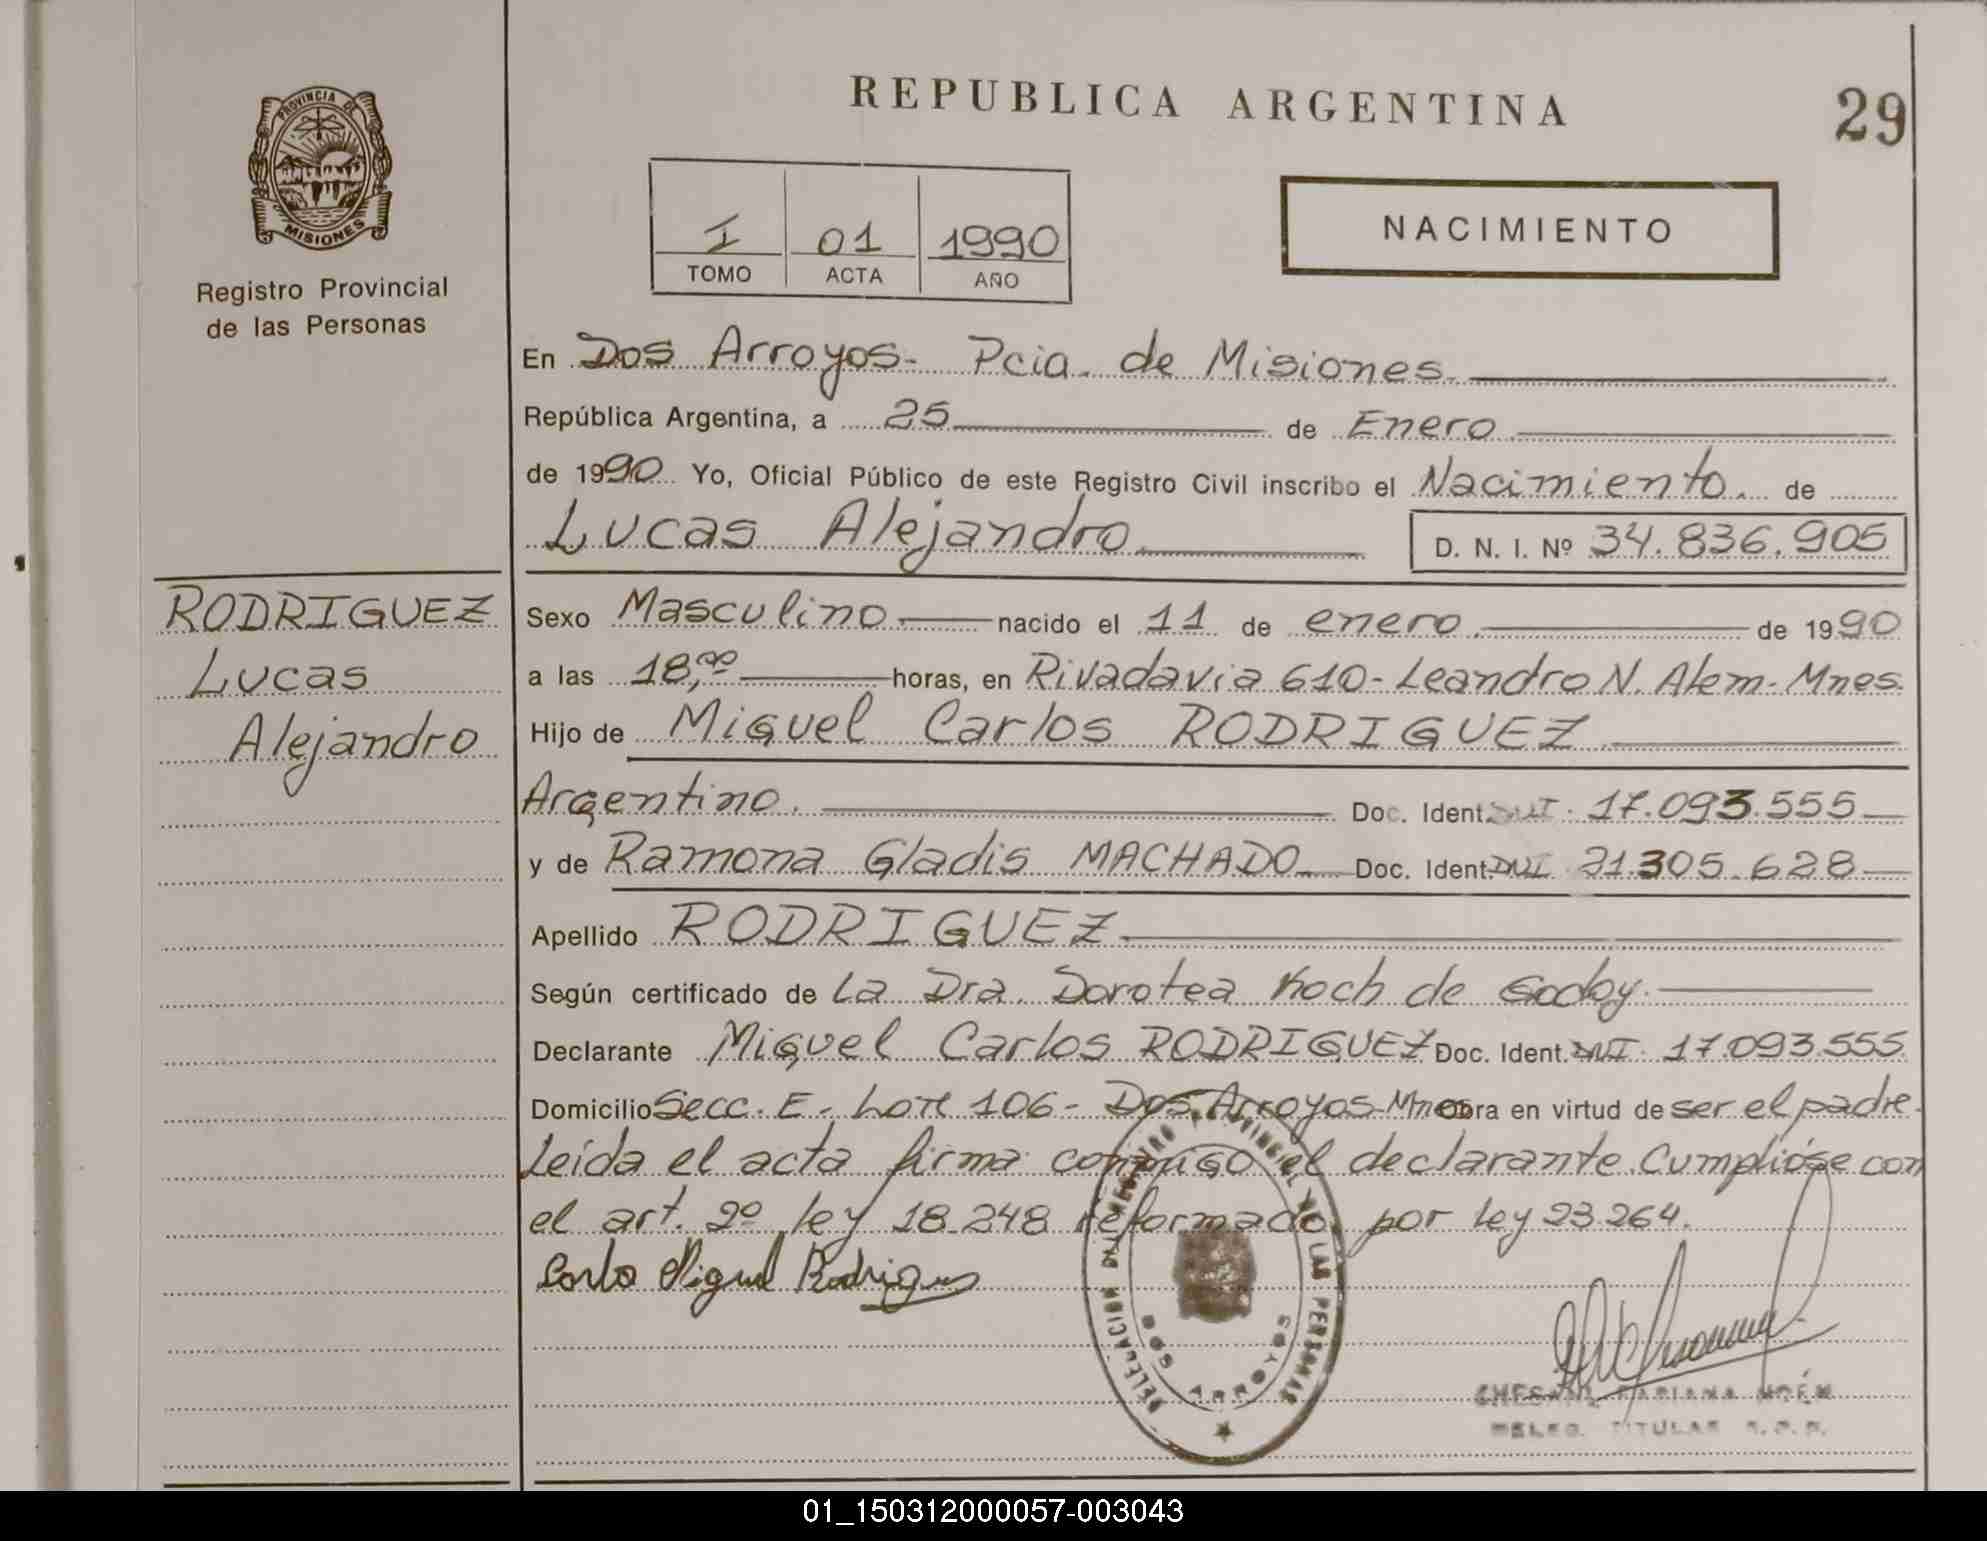 PROVINCIA DE
MISIONES
Registro Provincial
de las Personas
REPUBLICA ARGENTINA
29
I 01 1990
TOMO ACTA AÑO
NACIMIENTO
En Dos Arroyos- Pcia. de Misiones.
República Argentina, a 25 de Enero
de 1990 Yo, Oficial Público de este Registro Civil inscribo el Nacimiento. de
Lucas Alejandro D. N. I. Nº 34.836.905
RODRIGUEZ
Lucas
Alejandro
Sexo Masculino nacido el 11 de enero de 1990
a las 18,00 horas, en Rivadavia 610- Leandro N. Alem- Mnes.
Hijo de Miguel Carlos RODRIGUEZ
Argentino. Doc. Ident. DNI. 17.093.555
y de Ramona Gladis MACHADO Doc. Ident. DNI 21.305.628
Apellido RODRIGUEZ
Según certificado de La Dra. Dorotea Koch de Godoy.
Declarante Miguel Carlos RODRIGUEZ Doc. Ident. DNI. 17.093.555
Domicilio Secc. E- Lote 106- Dos Arroyos-Mnes obra en virtud de ser el padre.
Leída el acta firma conmigo el declarante. Cumplióse con
el art. 2º ley 18.248 reformado por ley 23.264.
Carlo Miguel Rodrigues
DELEGACION DEL REGISTRO PROVINCIAL DE LAS PERSONAS
DOS ARROYOS
FABIANA NOÉM
DELEG. TITULAR R.P.P.
01_150312000057-003043